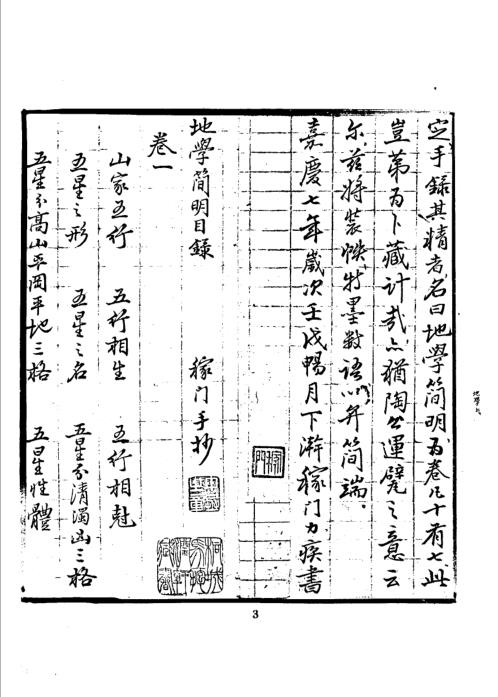 定手錄其精者名曰地學簡明為卷凡十有七此
豈第為卜藏計哉亦猶陶公運甓之意云
尔茲將裝帙特墨數語以弁簡端
嘉慶七年歲次壬戌暢月下澣稼门力疾書
地學简明目錄 稼门手抄
卷一
山家五行 五行相生 五行相尅
五星之形 五星之名 五星分清濁凶三格
五星分高山平岡平地三格 五星性體
3